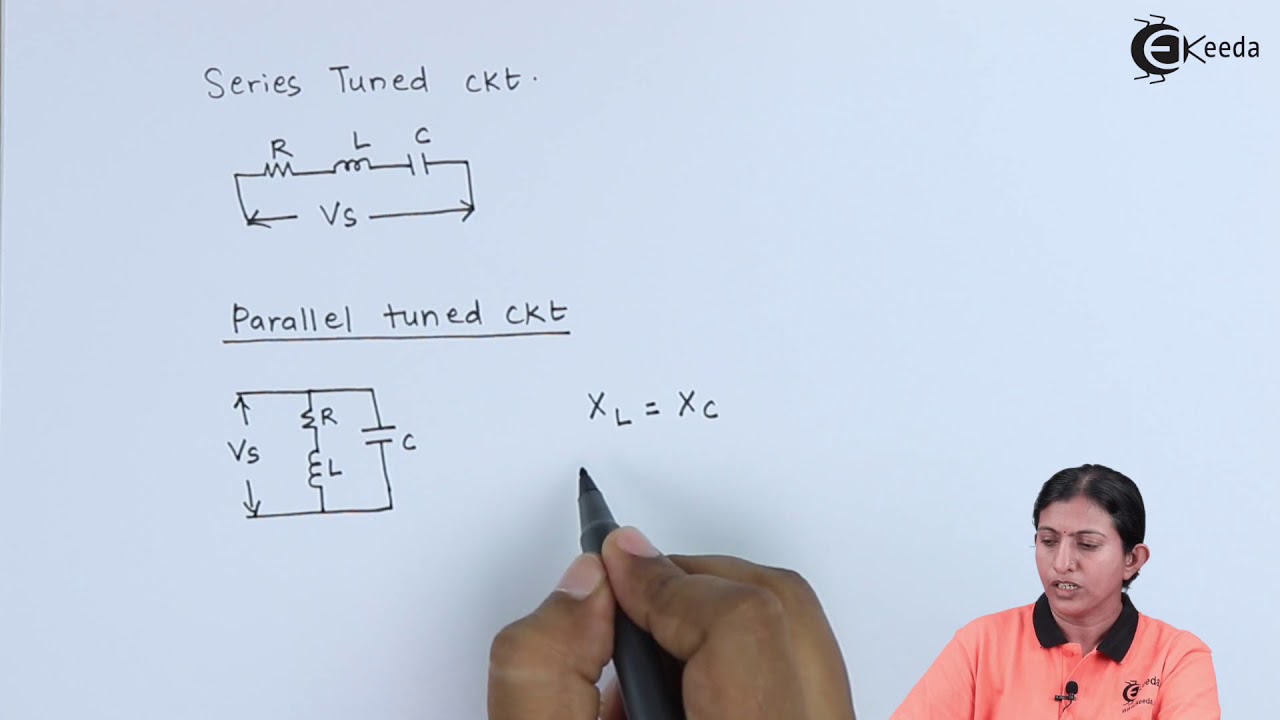 EKeeda
Series Tuned ckt.
R L C
Vs
Parallel tuned ckt
R
Vs
C
L
X_L = X_C
Keeda